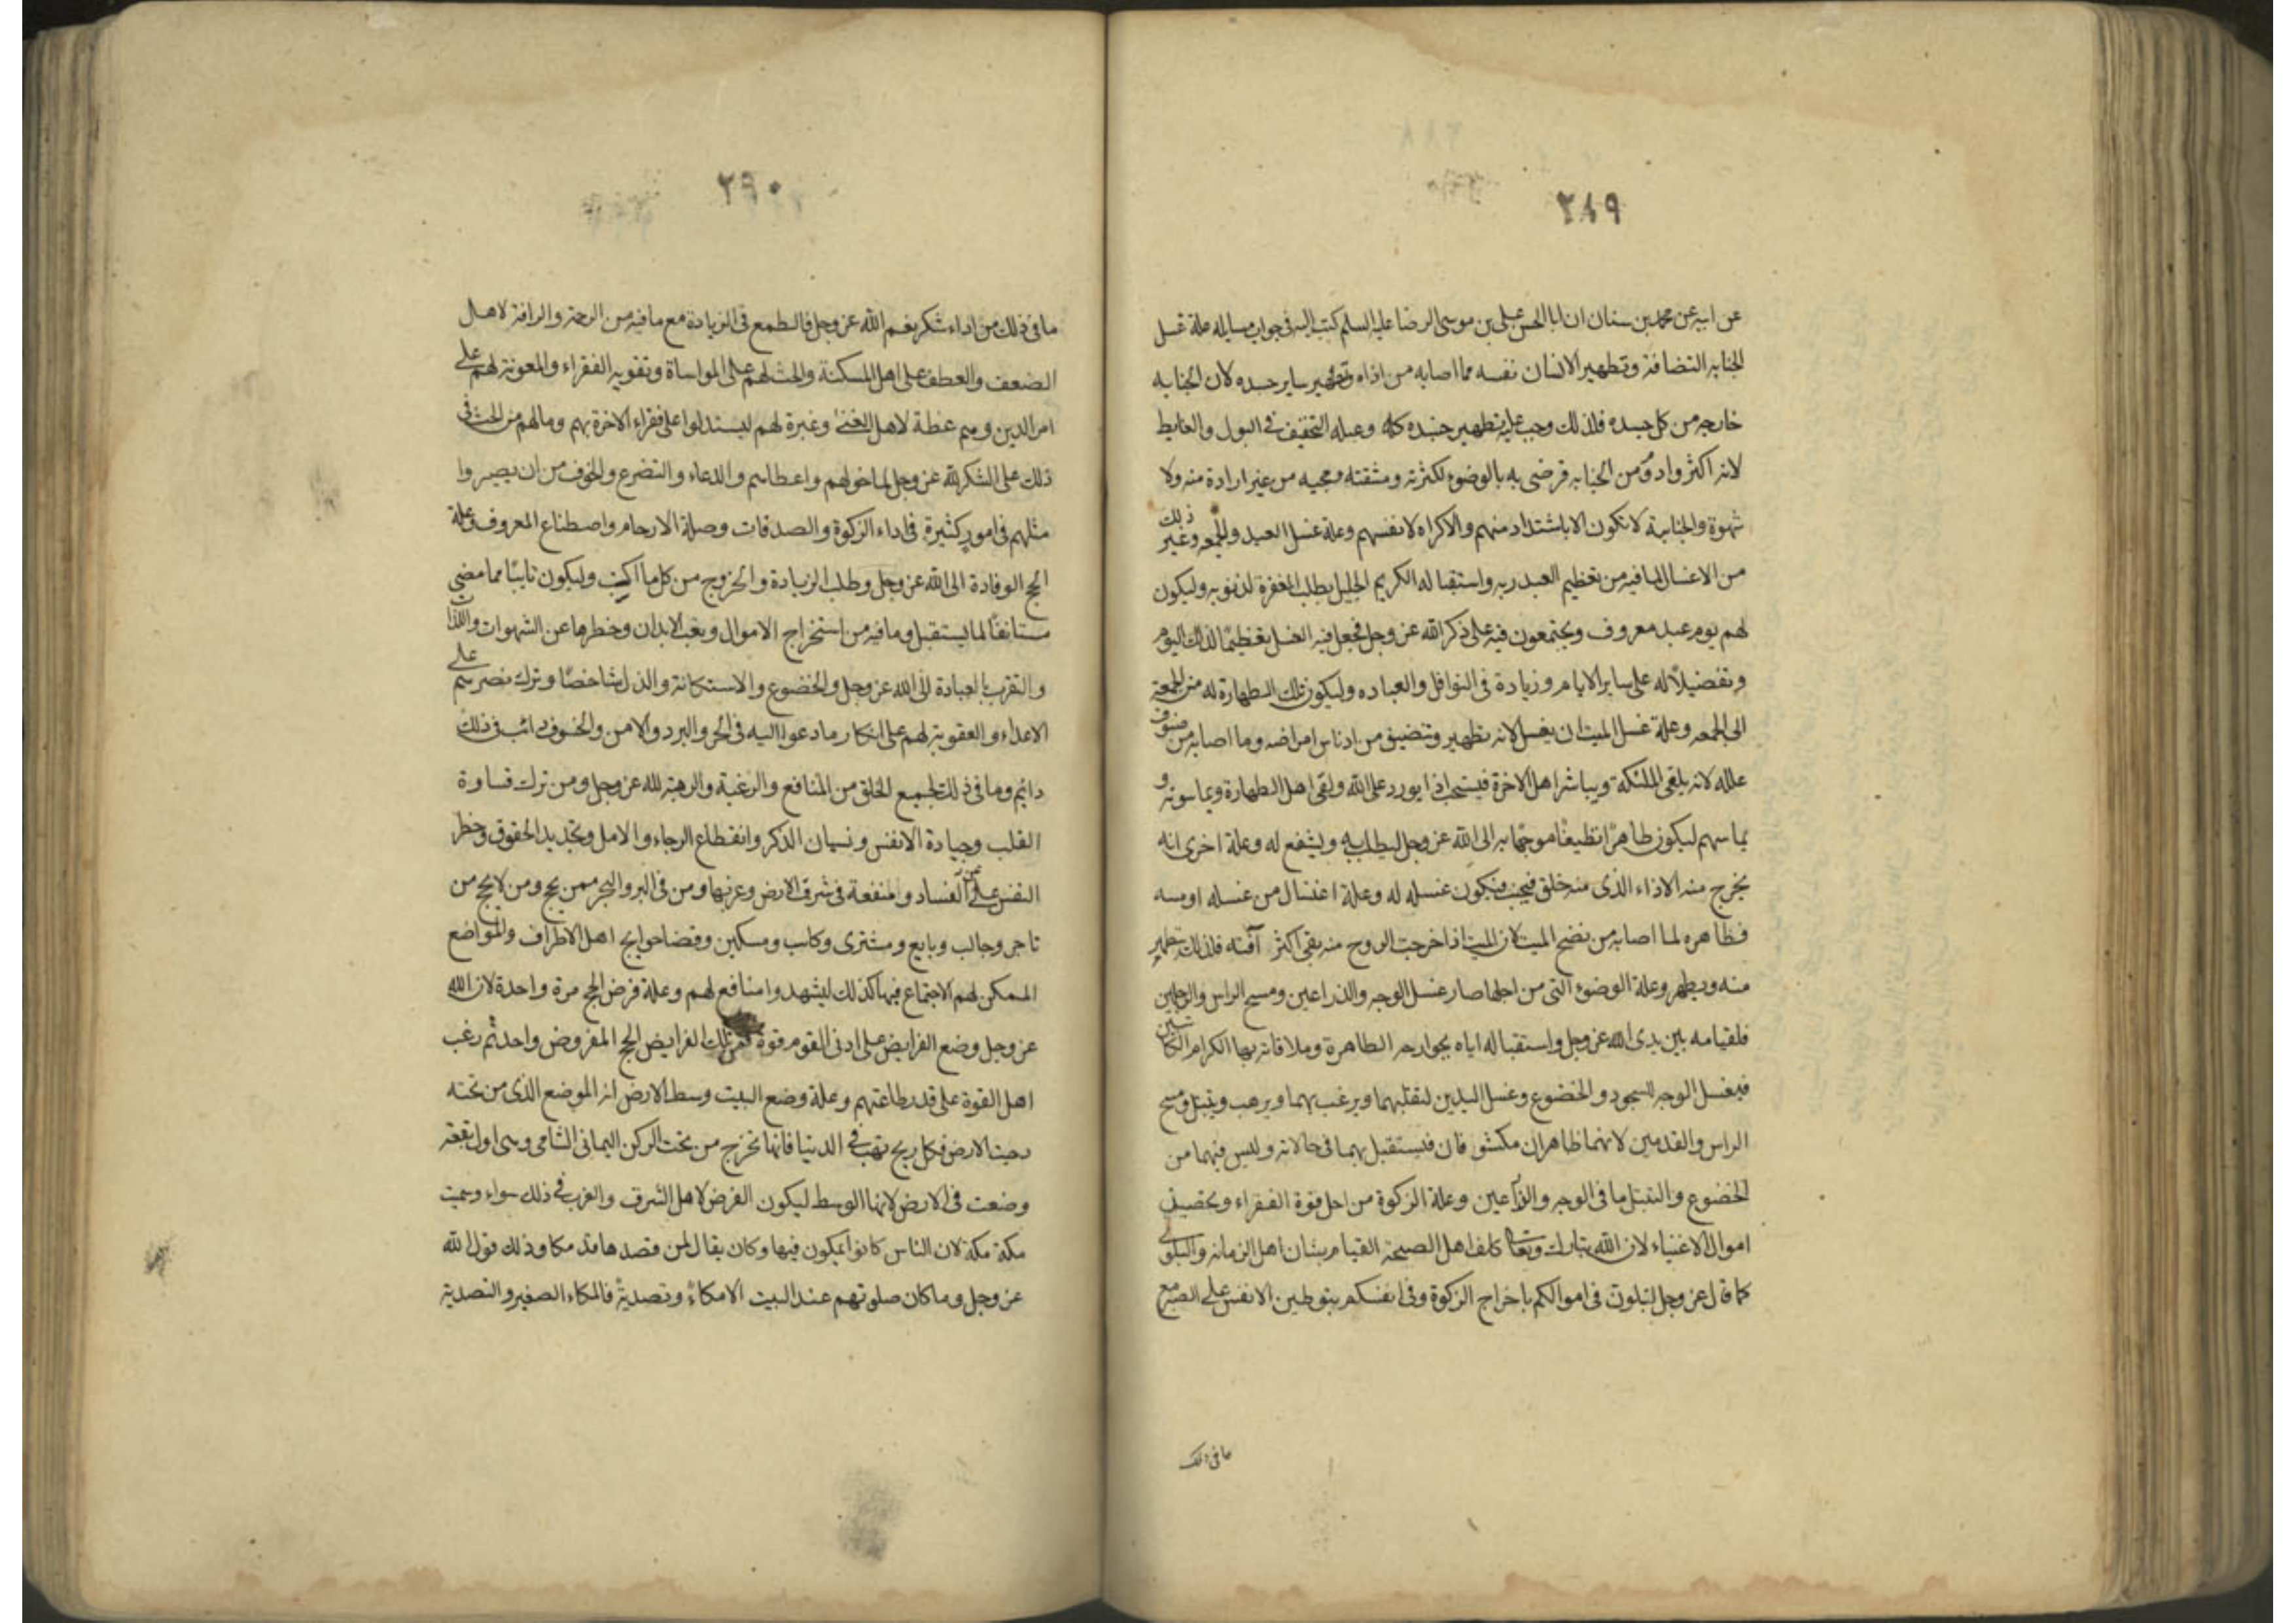 ٢٨٩
عن ابيه عن محمد بن سنان ان ابا الحسن علي بن موسى الرضا عليه السلم كتب اليه في جواب مسايله علة غسل
الجنابه النضافة وتطهير الانسان نفسه مما اصابه من اذاه وتطهير ساير جسده لان الجنابه
خارجه من كل جسده فلذلك وجب عليه تطهير جسده كله وعله التخفيف في البول والغايط
لانه اكثر وادوم من الجنابه فرضى به بالوضوء لكثرته ومشقته ومجيه من غير ارادة منه ولا
شهوة والجنابة لا تكون الا باشتداد منهم والاكراه لانفسهم وعلة غسل العيد والجمعه وغير ذلك
من الاغسال لما فيه من تعظيم العبد ربه واستقباله الكريم الجليل يطلب المغفرة لذنوبه وليكون
لهم يوم عيد معروف ويجتمعون فيه على ذكر الله عز وجل فجعل فيه الغسل تعظيمًا لذلك اليوم
وتفضيلاً له على ساير الايام وزيادة في النوافل والعباده وليكون تلك الطهارة له من الجمعة
الى الجمعه وعلة غسل الميت ان يغسل لانه تطهير وتنضيف من ادناس امراضه وما اصابه من صنوف
علله لانه يلقى الملئكة ويباشر اهل الاخرة فيستحب اذا يورد على الله ولقى اهل الطهارة ويماسونه و
يماسهم ليكون طاهرًا نظيفًا موجهًا به الى الله عز وجل ليطلب به ويشفع له وعلة اخرى انه
يخرج منه الاذاء الذى منه خلق فيجنب فيكون غسله له وعلة اغتسال من غسله اومسه
فظاهره لما اصابه من نضح الميت لان الميت اذا خرجت الروح منه بقى اكثر آفته فلذلك تطهير
منه ويطهر وعلة الوضوء التى من اجلها صار غسل الوجه والذراعين ومسح الراس والرجلين
فلقيامه بين يدى الله عز وجل واستقباله اياه بجوارحه الطاهرة وملاقاته بها الكرام الكاتبين
فيغسل الوجه للسجود والخضوع وغسل اليدين لتقلبهما ويرغب بهما ويرهب ويتبتل ومسح
الراس والقدمين لانهما ظاهران مكشوفان فيستقبل بهما في حالاته وليس فيهما من
الخضوع والتبتل ما في الوجه والذراعين وعلة الزكوة من اجل قوة الفقراء وتحصين
اموال الاغنياء لان الله تبارك وتعالى كلف اهل الصحة القيام بشان اهل الزمانه والبلوى
كما قال عز وجل لتبلون في اموالكم باخراج الزكوة وفي انفسكم بتوطين الانفس على الصبر مع
ما في ذلك
٢٩٠
ما في ذلك من اداء شكر نعم الله عز وجل والطمع في الزيادة مع ما فيه من الرحمة والرافة لاهل
الضعف والعطف على اهل المسكنة والحث لهم على المواساة وتقويه الفقراء والمعونة لهم على
امر الدين وهم عظة لاهل الغنى وعبرة لهم ليستدلوا على فقراء الاخرة بهم ومالهم من الحث في
ذلك على الشكر لله عز وجل لما خولهم واعطاهم والدعاء والتضرع والخوف من ان يصيروا
مثلهم في امور كثيرة في اداء الزكوة والصدقات وصلة الارحام واصطناع المعروف وعلة
الحج الوفادة الى الله عز وجل وطلب الزيادة والخروج من كل ما اكتسب وليكون تايبًا مما مضى
مستانفًا لما يستقبل وما فيه من استخراج الاموال وتعب الابدان وحظرها عن الشهوات واللذات
والتقرب بالعبادة الى الله عز وجل والخضوع والاستكانة والذل شاخصًا وترك نصرتهم على
الاعداء والعقوبة لهم على انكار ما دعوا اليه في الحر والبرد والامن والخوف دائب في ذلك
دائم وما في ذلك لجميع الخلق من المنافع والرغبة والرهبة لله عز وجل ومن ترك قساوة
القلب وجيادة الانفس ونسيان الذكر وانقطاع الرجاء والامل وتجديد الحقوق وحظر
النفس عن الفساد ومنفعة في شرق الارض وغربها ومن في البر والبحر ممن يحج ومن لا يحج من
تاجر وجالب وبايع ومشترى وكاسب ومسكين وقضا حوايج اهل الاطراف والمواضع
الممكن لهم الاجتماع فيها كذلك ليشهدوا منافع لهم وعلة فرض الحج مرة واحدة لان الله
عز وجل وضع الفرايض على ادنى القوم قوة فمن تلك الفرايض الحج المفروض واحد ثم رغب
اهل القوة على قدر طاعتهم وعلة وضع البيت وسط الارض انه الموضع الذى من تحته
دحيت الارض فكل ريح تهب في الدنيا فانها تخرج من تحت الركن اليمانى الشامى وهى اول بقعة
وضعت في الارض لانها الوسط ليكون الفرض لاهل الشرق والغرب في ذلك سواء وسميت
مكة مكة لان الناس كانوا يمكون فيها وكان يقال لمن قصدها قد مكا وذلك قول الله
عز وجل وما كان صلوتهم عند البيت الا مكاءً وتصديةً فالمكاء الصفير والتصدية